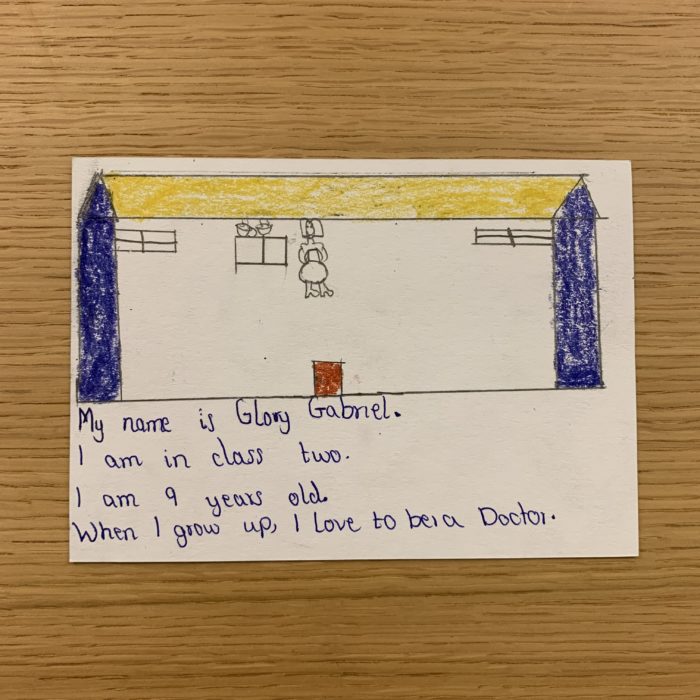 My name is Glory Gabriel.
I am in class two.
I am 9 years old.
When I grow up, I love to be a Doctor.